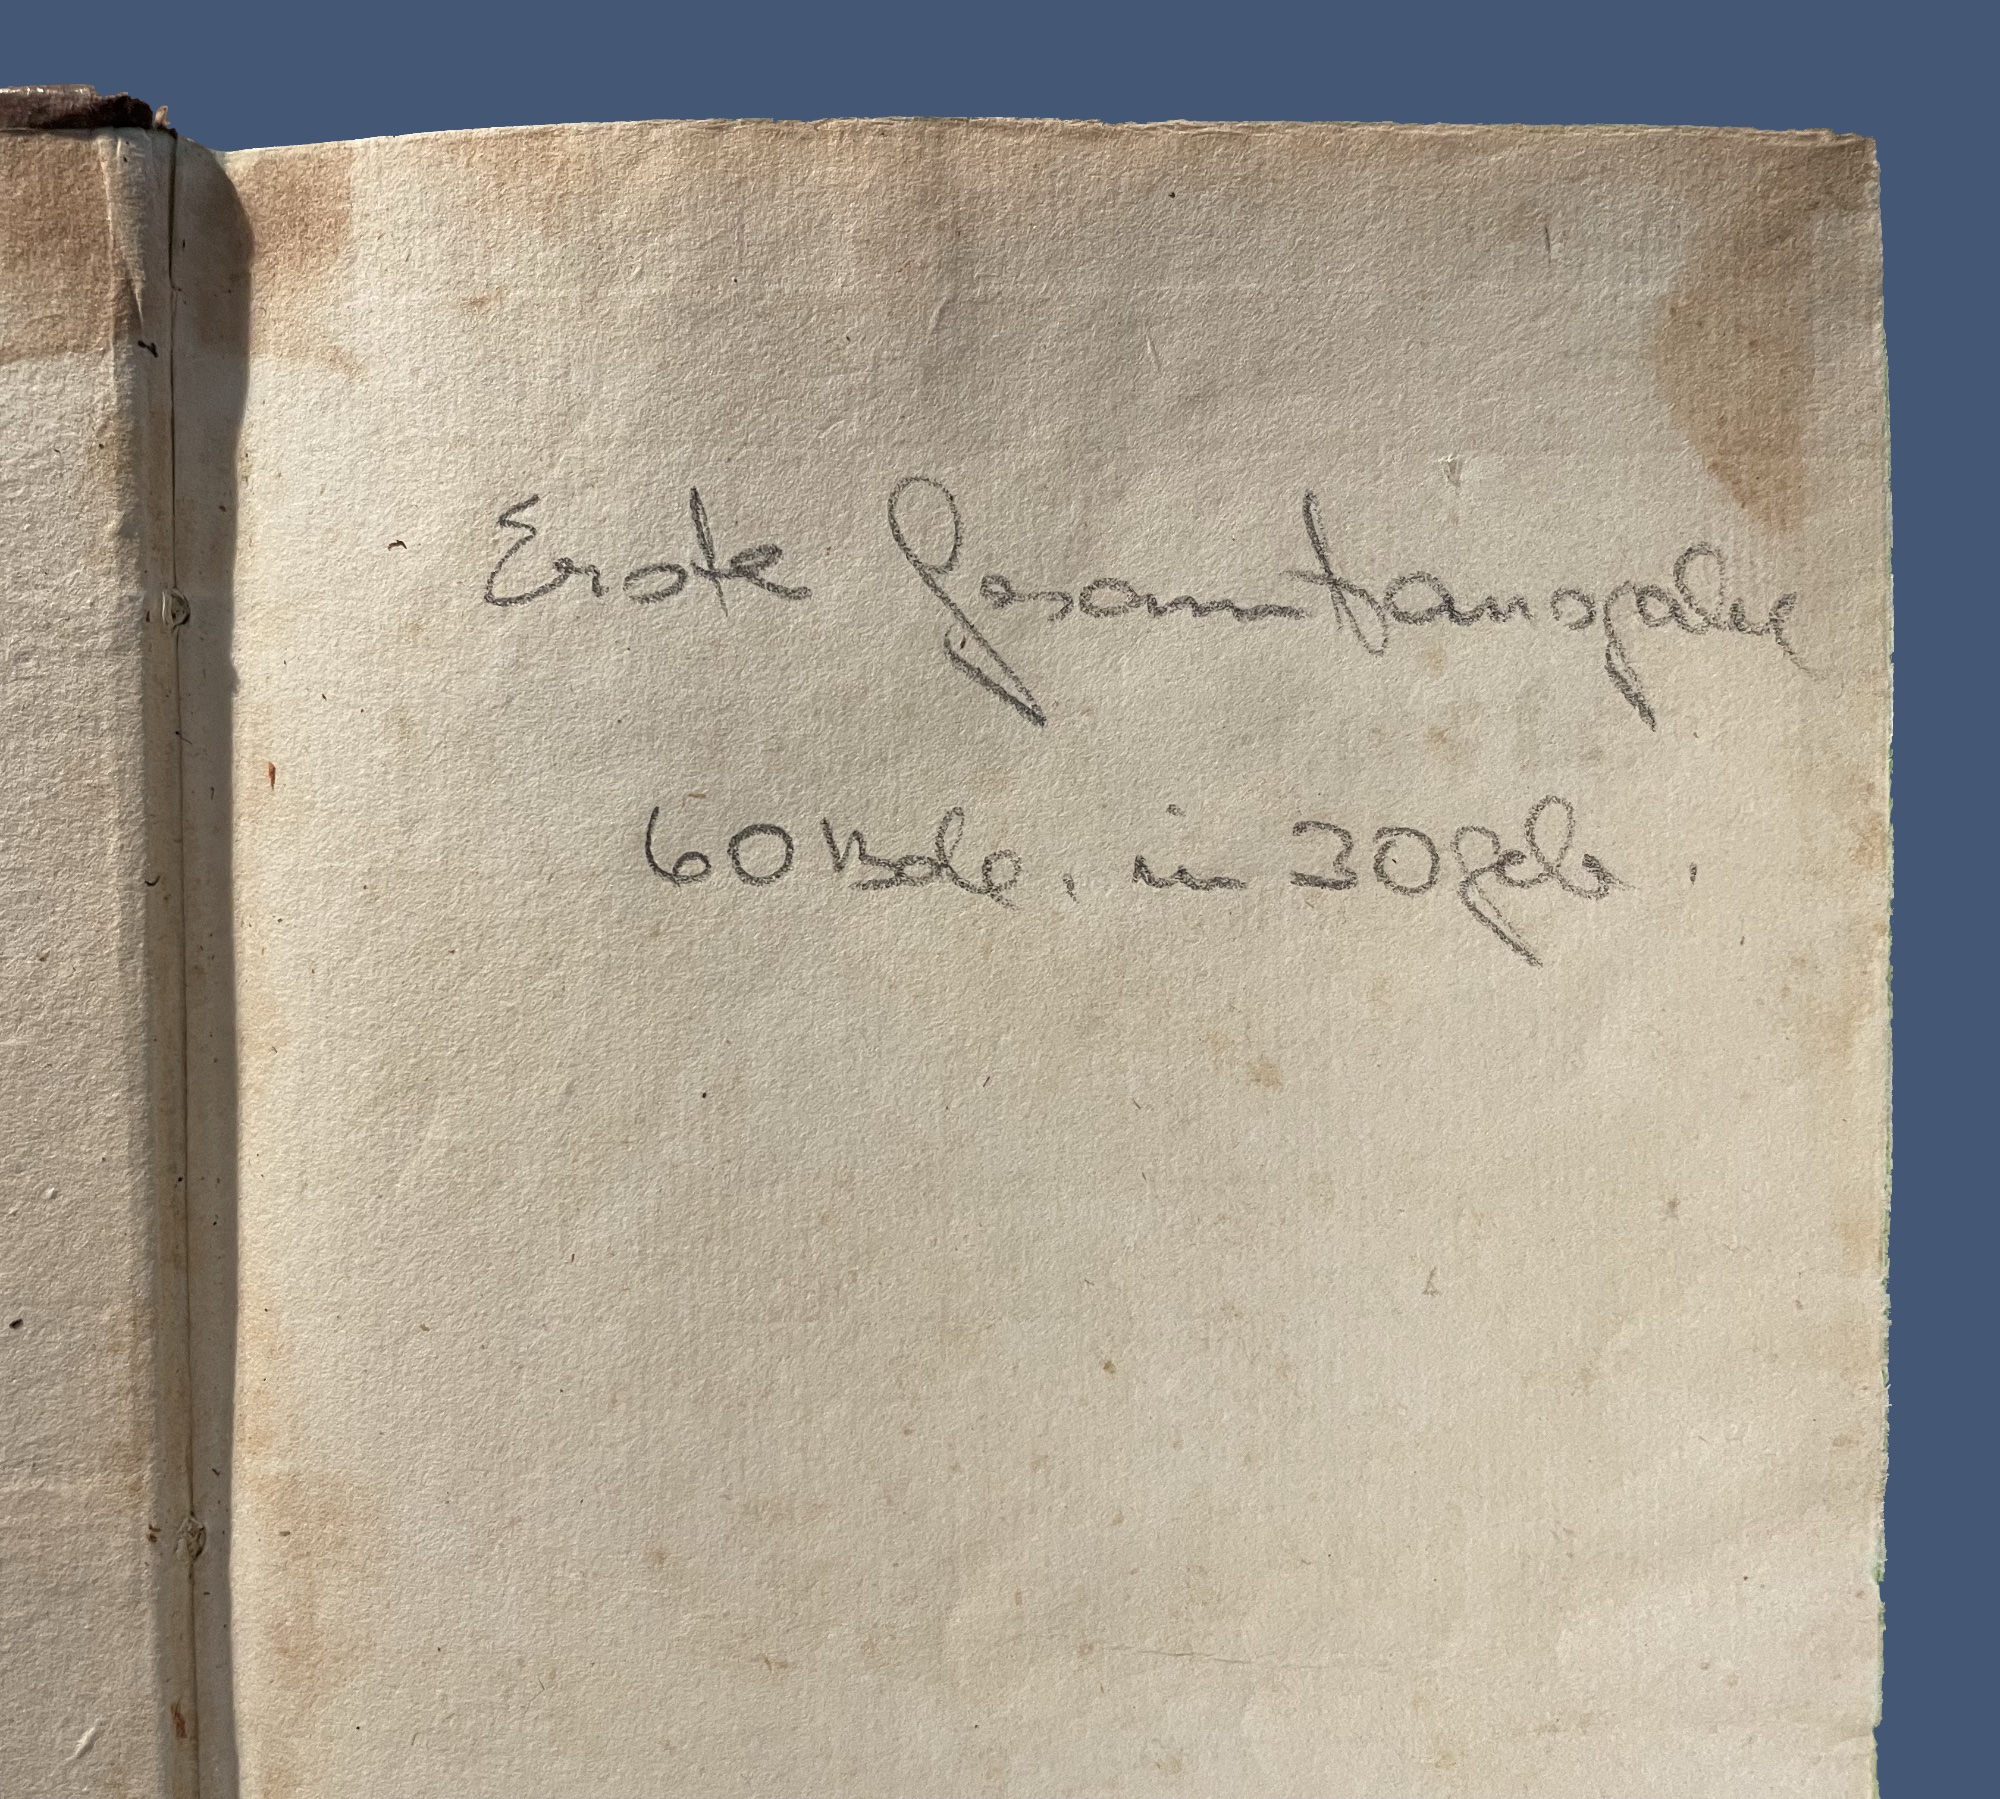 Erste Gesamtausgabe
60 Bde. in 30 geb.